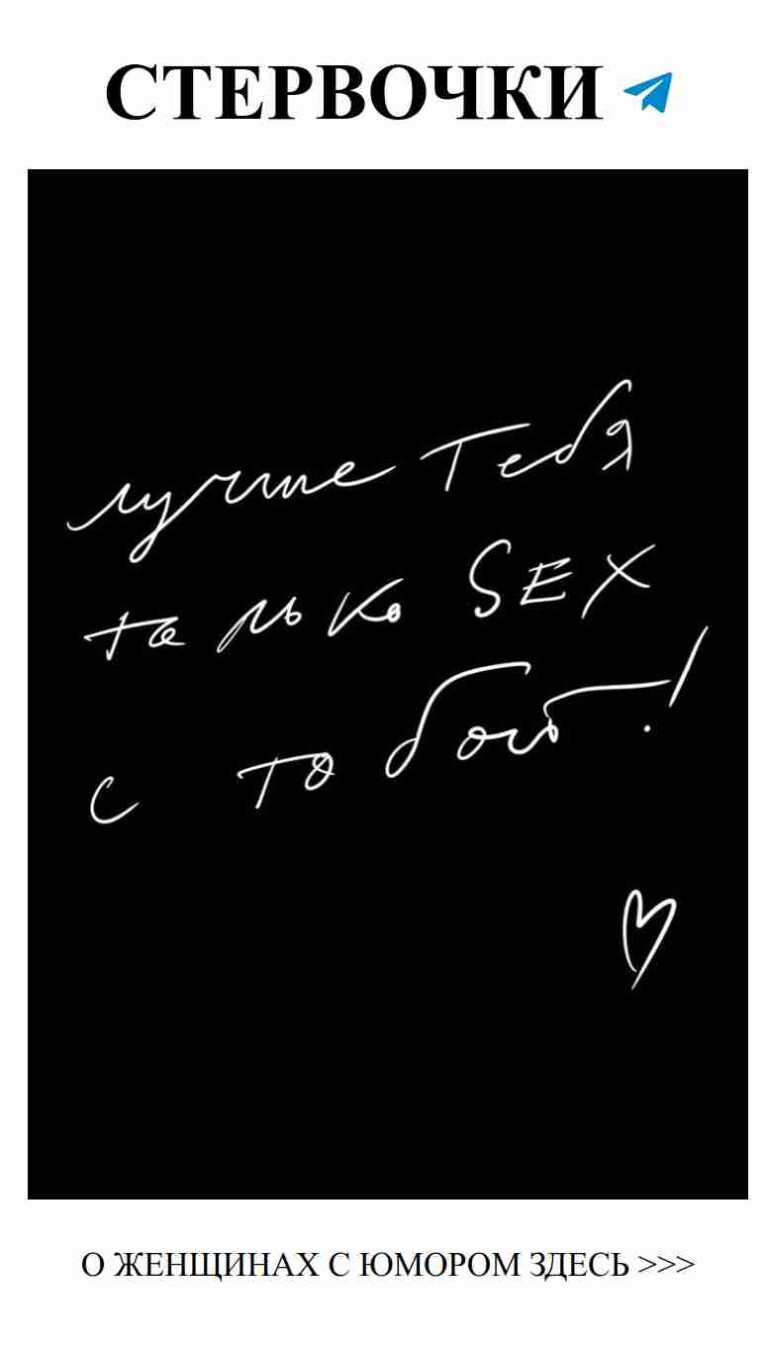 СТЕРВОЧКИ
лучше Тебя
только SEX
с тобой!
О ЖЕНЩИНАХ С ЮМОРОМ ЗДЕСЬ >>>